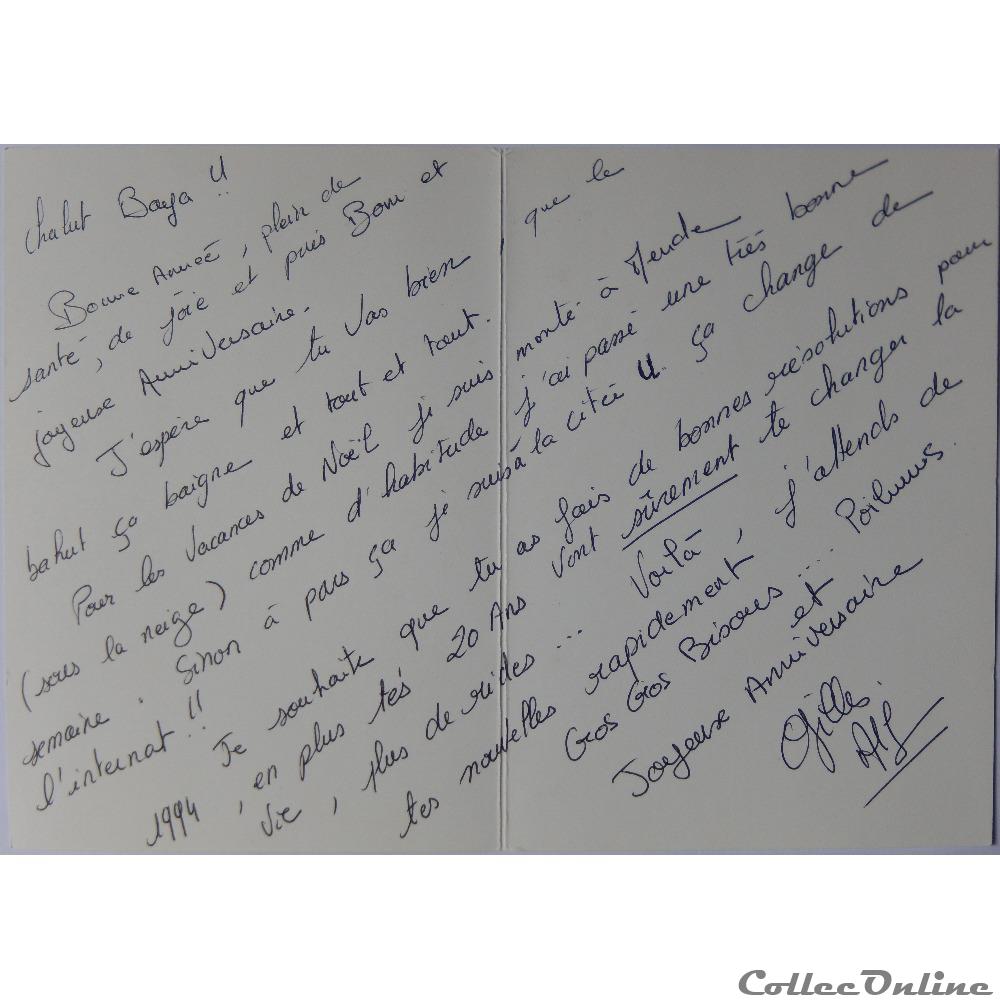 Chalut Baya !!
Bonne Année, plein de
santé, de joie et puis Bon et
joyeuse Anniversaire.
J'espère que tu vas bien que le
bahut ça baigne et tout et tout.
Pour les vacances de Noël je suis monté à Mende
(sous la neige) comme d'habitude j'ai passé une très bonne
semaine. Sinon à pars ça je suis à la citée U. ça change de
l'internat !!
Je souhaite que tu as fais de bonnes résolutions pour
1994, en plus tes 20 Ans vont sûrement te changer la
vie, plus de rides... Voilà, j'attends de
tes nouvelles rapidement
Gros Gros Bisous... et
Joyeuse Anniversaire
Gilles.
CollecOnline